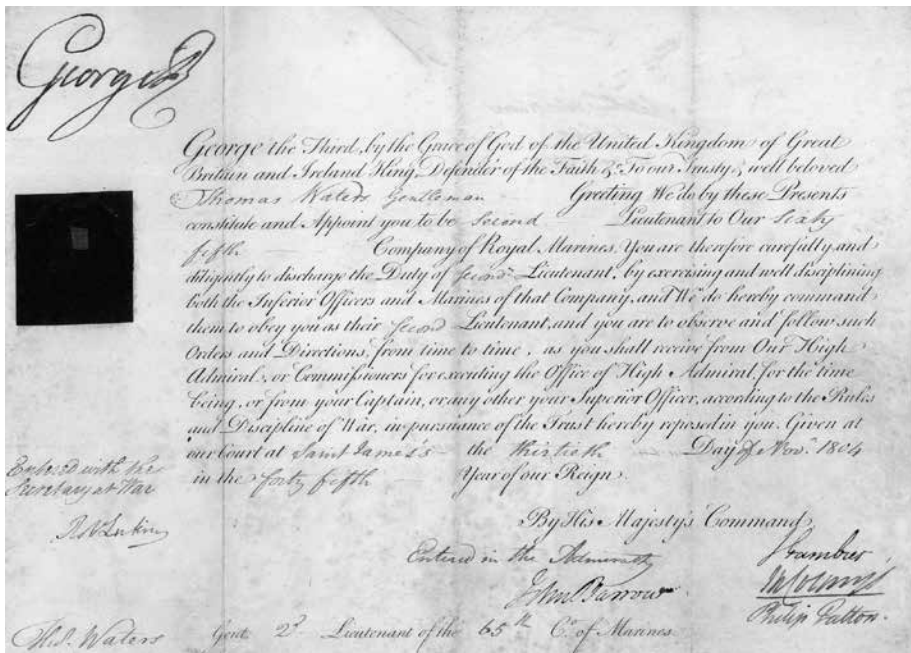 George R
George the Third, by the Grace of God of the United Kingdom of Great
Britain and Ireland King, Defender of the Faith &c. To our Trusty & well beloved
Thomas Waters Gentleman Greeting We do by these Presents
constitute and Appoint you to be Second Lieutenant to Our Sixty
fifth Company of Royal Marines. You are therefore carefully and
diligently to discharge the Duty of Second Lieutenant, by exercising and well disciplining
both the Inferior Officers and Marines of that Company, and We do hereby command
them to obey you as their Second Lieutenant, and you are to observe and follow such
Orders and Directions, from time to time, as you shall receive from Our High
Admiral, or Commissioners for executing the Office of High Admiral, for the time
being, or from your Captain, or any other your Superior Officer, according to the Rules
and Discipline of War, in pursuance of the Trust hereby reposed in you. Given at
our Court at Saint James's the thirtieth Day of Novr. 1804
in the forty fifth Year of our Reign.
with the
Secretary at War
By His Majesty's Command,
Entered in the Admiralty
John Barrow
Gambier
Philip Patton.
Thos. Waters Gent. 2d. Lieutenant of the 65th Co. of Marines